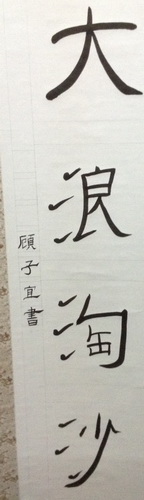 大浪淘沙
顾子宜書